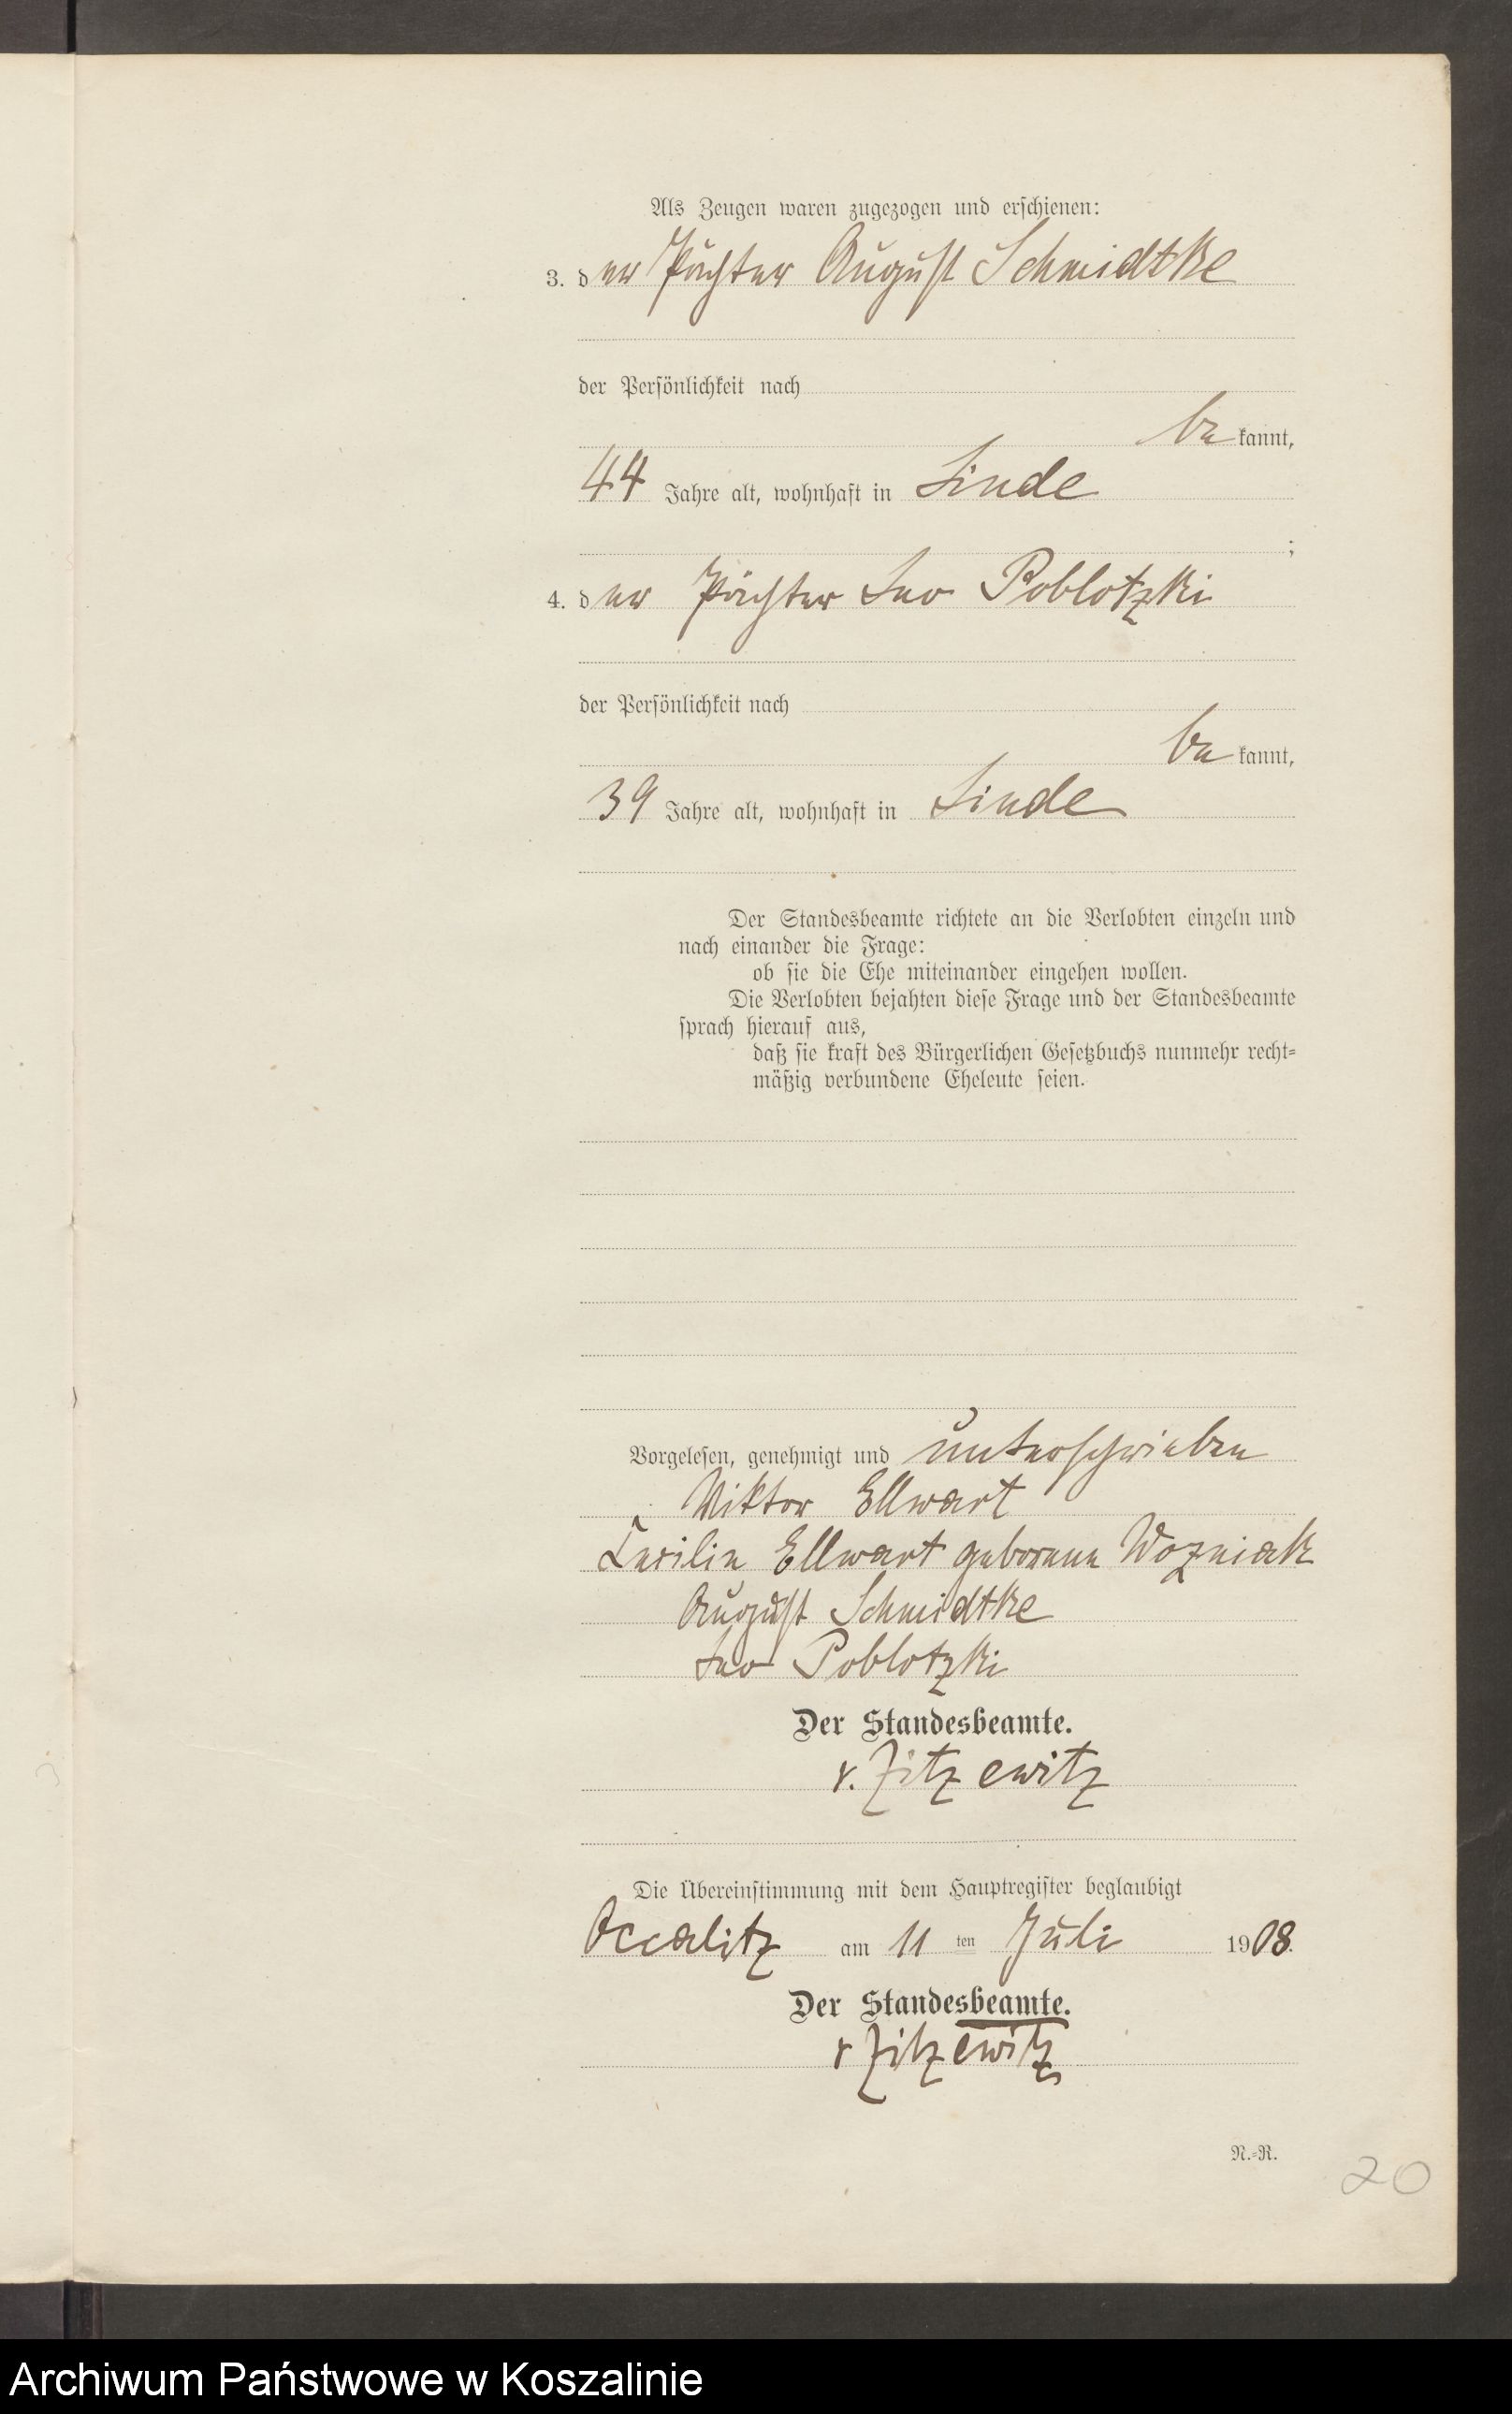 Als Zeugen waren zugezogen und erschienen:
3. der Pächter August Schmidtke
der Persönlichkeit nach
be kannt,
44 Jahre alt, wohnhaft in Linde
;
4. der Pächter Leo Poblotzki
der Persönlichkeit nach
be kannt,
39 Jahre alt, wohnhaft in Linde
Der Standesbeamte richtete an die Verlobten einzeln und
nach einander die Frage:
ob sie die Ehe miteinander eingehen wollen.
Die Verlobten bejahten diese Frage und der Standesbeamte
sprach hierauf aus,
daß sie kraft des Bürgerlichen Gesetzbuchs nunmehr recht-
mäßig verbundene Eheleute seien.
Vorgelesen, genehmigt und unterschrieben
Viktor Ellwart
Cecilie Ellwart geborene Wozniak
August Schmidtke
Leo Poblotzki
Der Standesbeamte.
v. Zitzewitz
Die Übereinstimmung mit dem Hauptregister beglaubigt
Occalitz am 11 ten Juli 1908.
Der Standesbeamte.
v Zitzewitz
N.-R.
20
Archiwum Państwowe w Koszalinie